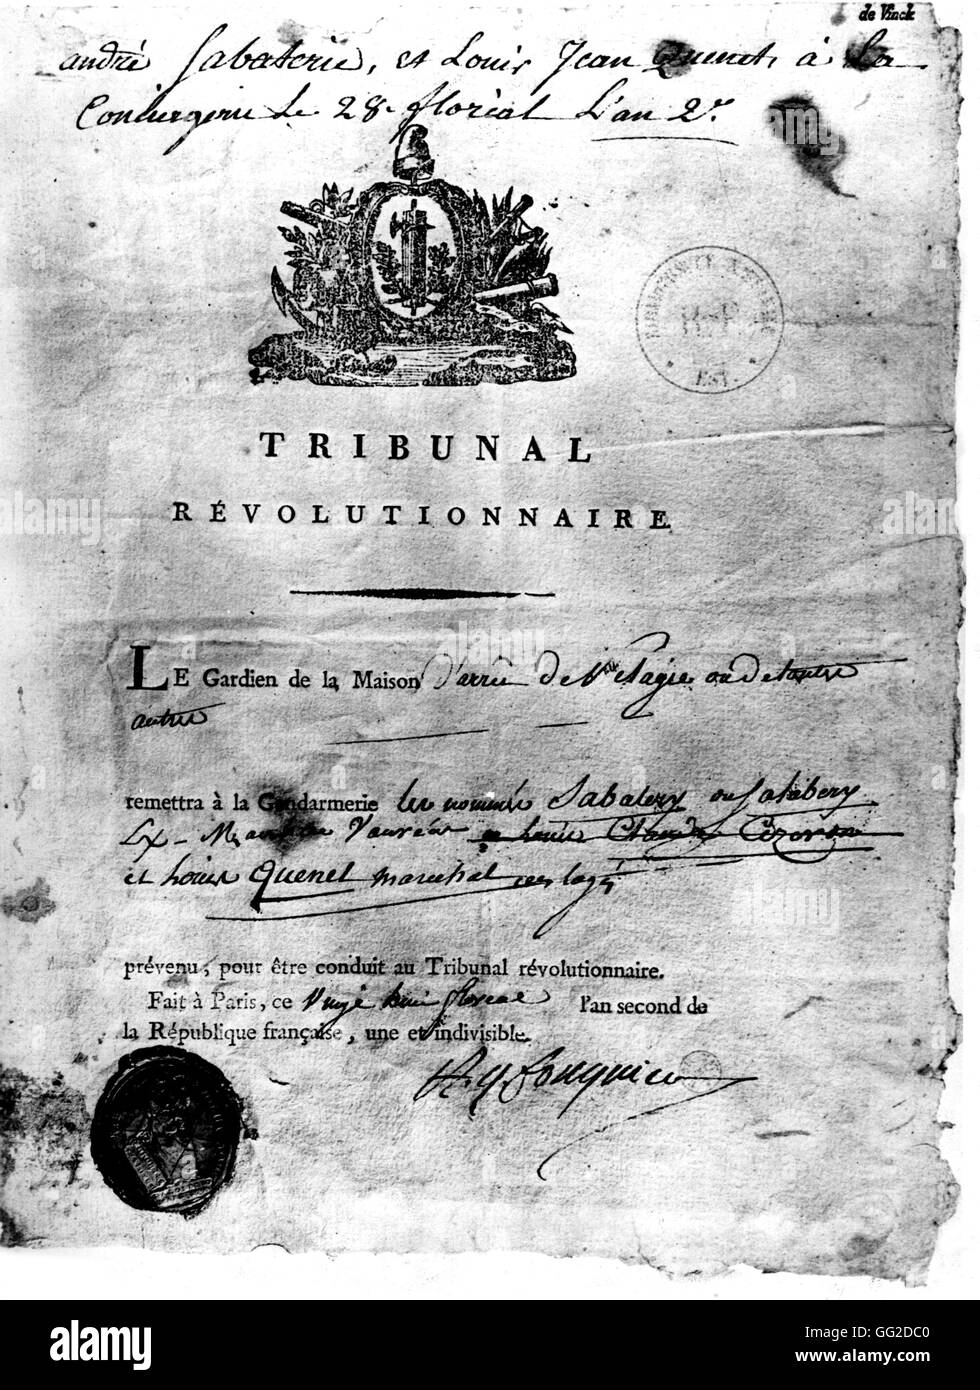 de Vinck
andré Sabaterie, et Louis Jean Quenet, à La
Conciergerie Le 28 floréal L'an 2e.
EST.
TRIBUNAL
RÉVOLUTIONNAIRE
LE Gardien de la Maison d'arrêt de Ste Pélagie ou de toutre
autre
remettra à la Gendarmerie les nommés Sabatery ou Salabery
Ex-
et Louis Quenet marechal des logis
prévenu, pour être conduit au Tribunal révolutionnaire.
Fait à Paris, ce Vingt huit floreal l'an second de
la République française, une et indivisible.
A. q. fouquier
alamy
Image ID: GG2DC0
www.alamy.com